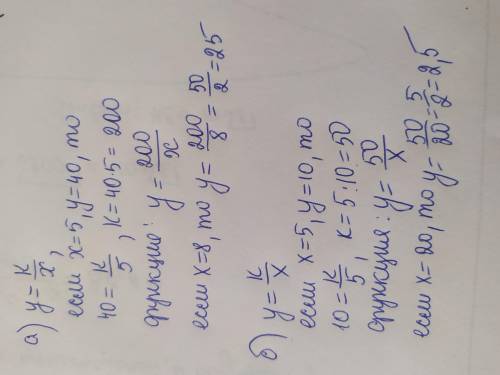 а) y = k/x,
если x=5, y=40, то
40 = k/5, k=40·5=200
функция: y = 200/x
если x=8, то y = 200/8 = 50/2 = 25
б) y = k/x
если x=5, y=10, то
10 = k/5, k=5·10=50
функция: y = 50/x
если x=20, то y = 50/20 = 5/2 = 2,5